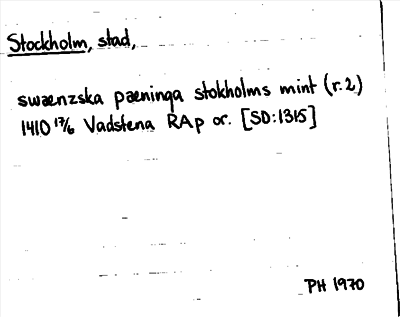 Stockholm, stad,
swænzska pæninga stokholms mint (r.2)
1410 17/6 Vadstena RAp or. [SD:1315]
PH 1970